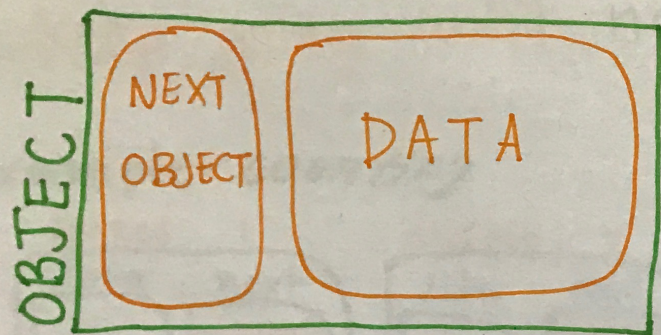 OBJECT
NEXT
OBJECT
DATA